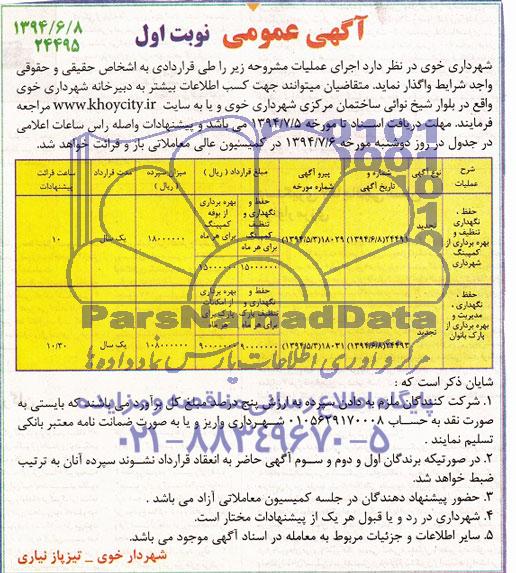 آگهی عمومی نوبت اول
۱۳۹۴/۶/۸
۲۴۴۹۵
شهرداری خوی در نظر دارد اجرای عملیات مشروحه زیر را طی قراردادی به اشخاص حقیقی و حقوقی
واجد شرایط واگذار نماید. متقاضیان میتوانند جهت کسب اطلاعات بیشتر به دبیرخانه شهرداری خوی
واقع در بلوار شیخ نوائی ساختمان مرکزی شهرداری خوی و یا به سایت www.khoycity.ir مراجعه
فرمایند. مهلت دریافت اسناد تا مورخه ۱۳۹۴/۷/۵ می باشد و پیشنهادات واصله راس ساعات اعلامی
در جدول در روز دوشنبه مورخه ۱۳۹۴/۷/۶ در کمیسیون عالی معاملاتی باز و قرائت خواهد شد.
شرح عملیات | نوع آگهی | شماره و تاریخ آگهی | پیرو آگهی شماره مورخه | مبلغ قرارداد ( ریال ) | میزان سپرده ( ریال ) | مدت قرارداد | ساعت قرائت پیشنهادات
حفظ ، نگهداری تنظیف و بهره برداری از کمپینگ شهرداری | تجدید | (۱۳۹۴/۶/۸) | ۱۸۰۲۹(۱۳۹۴/۵/۳) | حفظ و نگهداری و تنظیف کمپینگ برای هر ماه ۱۵۰۰۰۰۰۰ | بهره برداری از بوفه کمپینگ برای هر ماه ۱۵۰۰۰۰۰۰ | ۱۸۰۰۰۰۰۰ | یک سال | ۱۰
حفظ و نگهداری ، مدیریت و بهره برداری از پارک بانوان | تجدید | ۲۴۴۹۳(۱۳۹۴/۶/۸) | ۱۸۰۳۱(۱۳۹۴/۵/۳) | حفظ و نگهداری و تنظیف پارک برای هر ماه ۹۰۰۰۰۰۰ | بهره برداری از امکانات پارک برای هر ماه ۹۰۰۰۰۰۰ | ۱۰۸۰۰۰۰۰ | یک سال | ۱۰/۳۰
ParsNamadData
مرکز فرآوری اطلاعات پارس نماد داده‌ها
پایگاه اطلاع رسانی مناقصه و مزایده
۰۲۱-۸۸۳۴۹۶۷۰-۵
شایان ذکر است که :
۱. شرکت کنندگان ملزم به دادن سپرده به ارزش پنج درصد مبلغ کل برآورد می باشند که بایستی به
صورت نقد به حساب ۰۱۰۵۶۳۹۱۷۰۰۰۸ شهرداری واریز و یا به صورت ضمانت نامه معتبر بانکی
تسلیم نمایند .
۲. در صورتیکه برندگان اول و دوم و سوم آگهی حاضر به انعقاد قرارداد نشوند سپرده آنان به ترتیب
ضبط خواهد شد.
۳. حضور پیشنهاد دهندگان در جلسه کمیسیون معاملاتی آزاد می باشد .
۴. شهرداری در رد و یا قبول هر یک از پیشنهادات مختار است.
۵. سایر اطلاعات و جزئیات مربوط به معامله در اسناد آگهی موجود می باشد.
شهردار خوی _ تیزپاز نیاری